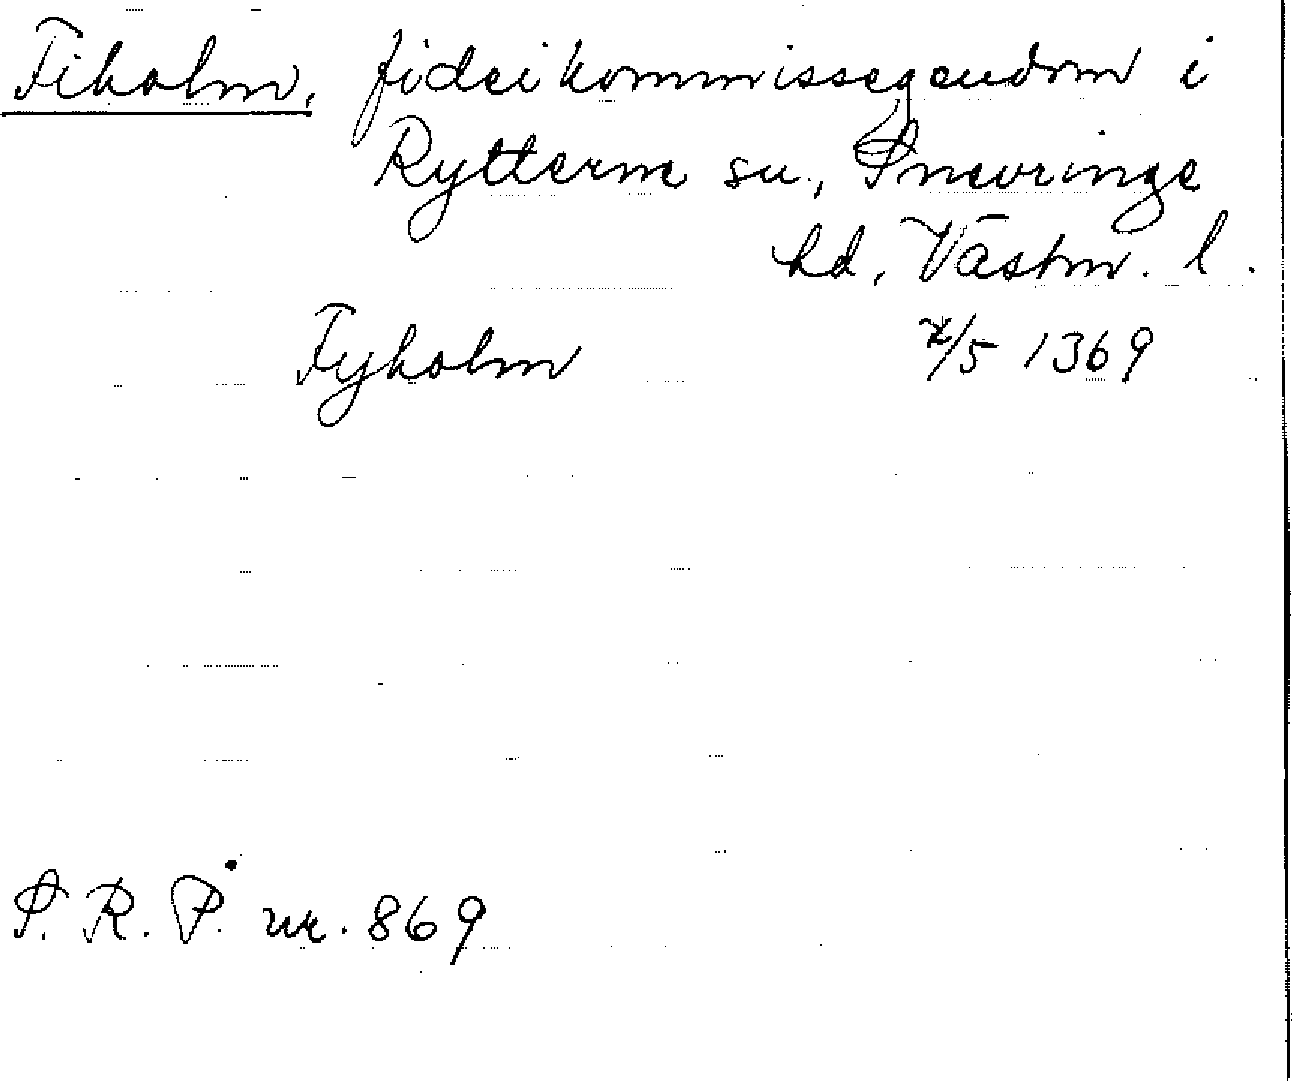 Fiholm, fideikommissegendom i
Rytterne sn., Snevringe
hd, Västm. l.
Fyholm /5 1369
S. R. P. nr. 869